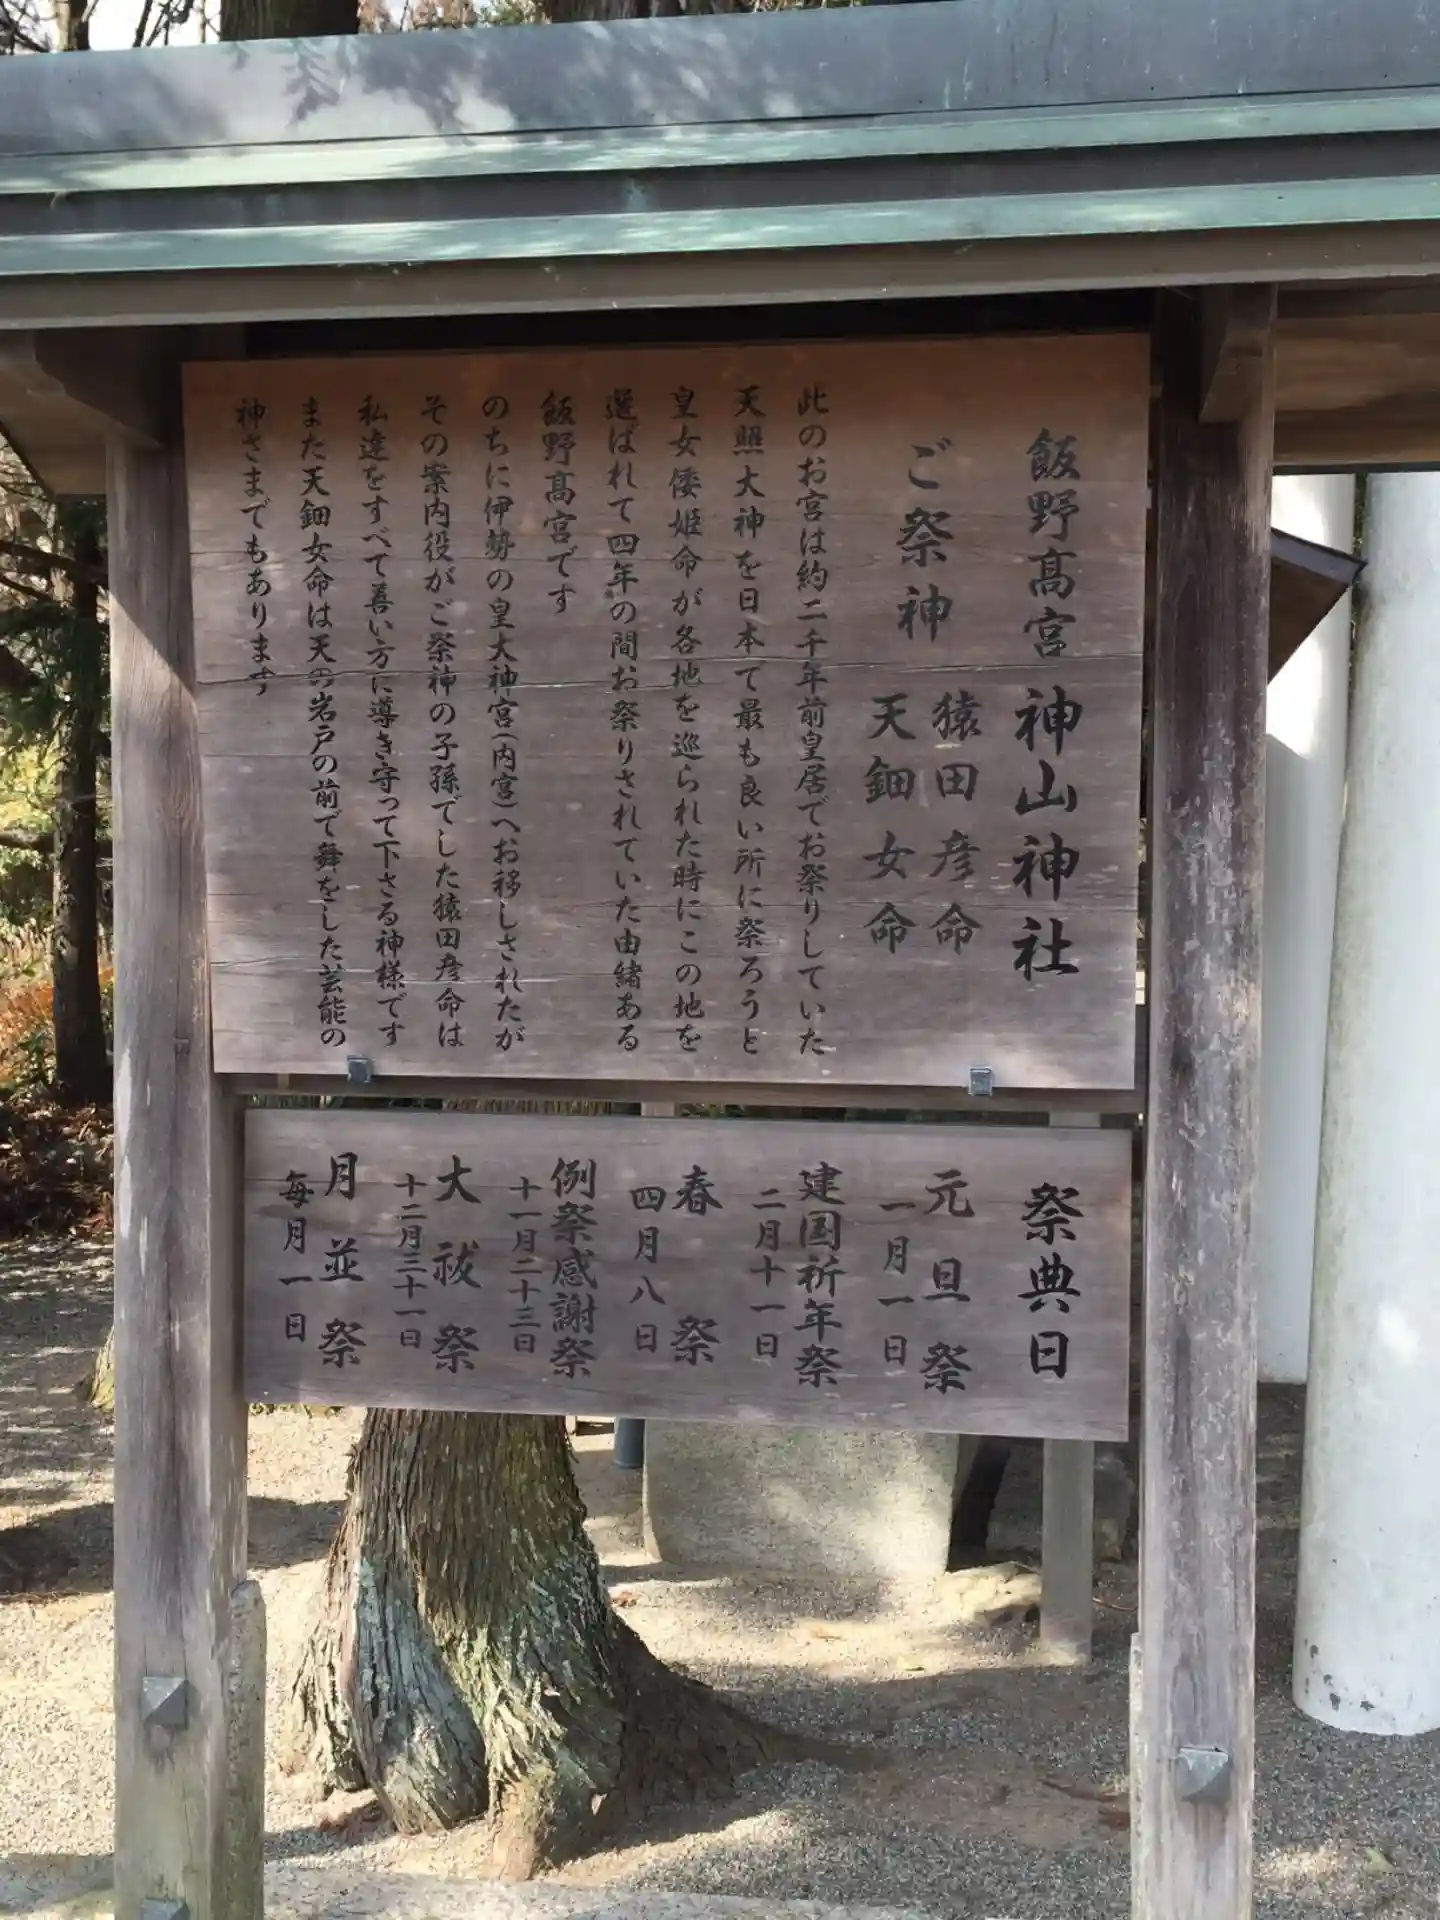 飯野高宮 神山神社
ご祭神 猿田彦命
天鈿女命
此のお宮は約二千年前皇居でお祭りしていた
天照大神を日本で最も良い所に祭ろうと
皇女倭姫命が各地を巡られた時にこの地を
選ばれて四年の間お祭りされていた由緒ある
飯野髙宮です
のちに伊勢の皇大神宮(内宮)へお移しされたが
その案内役がご祭神の子孫でした猿田彦命は
私達をすべて善い方に導き守って下さる神様です
また天鈿女命は天の岩戸の前で舞をした芸能の
神さまでもあります
祭典日
元旦祭
一月一日
建国祈年祭
二月十一日
春祭
四月八日
例祭感謝祭
十一月二十三日
大祓祭
十二月三十一日
月並祭
毎月一日